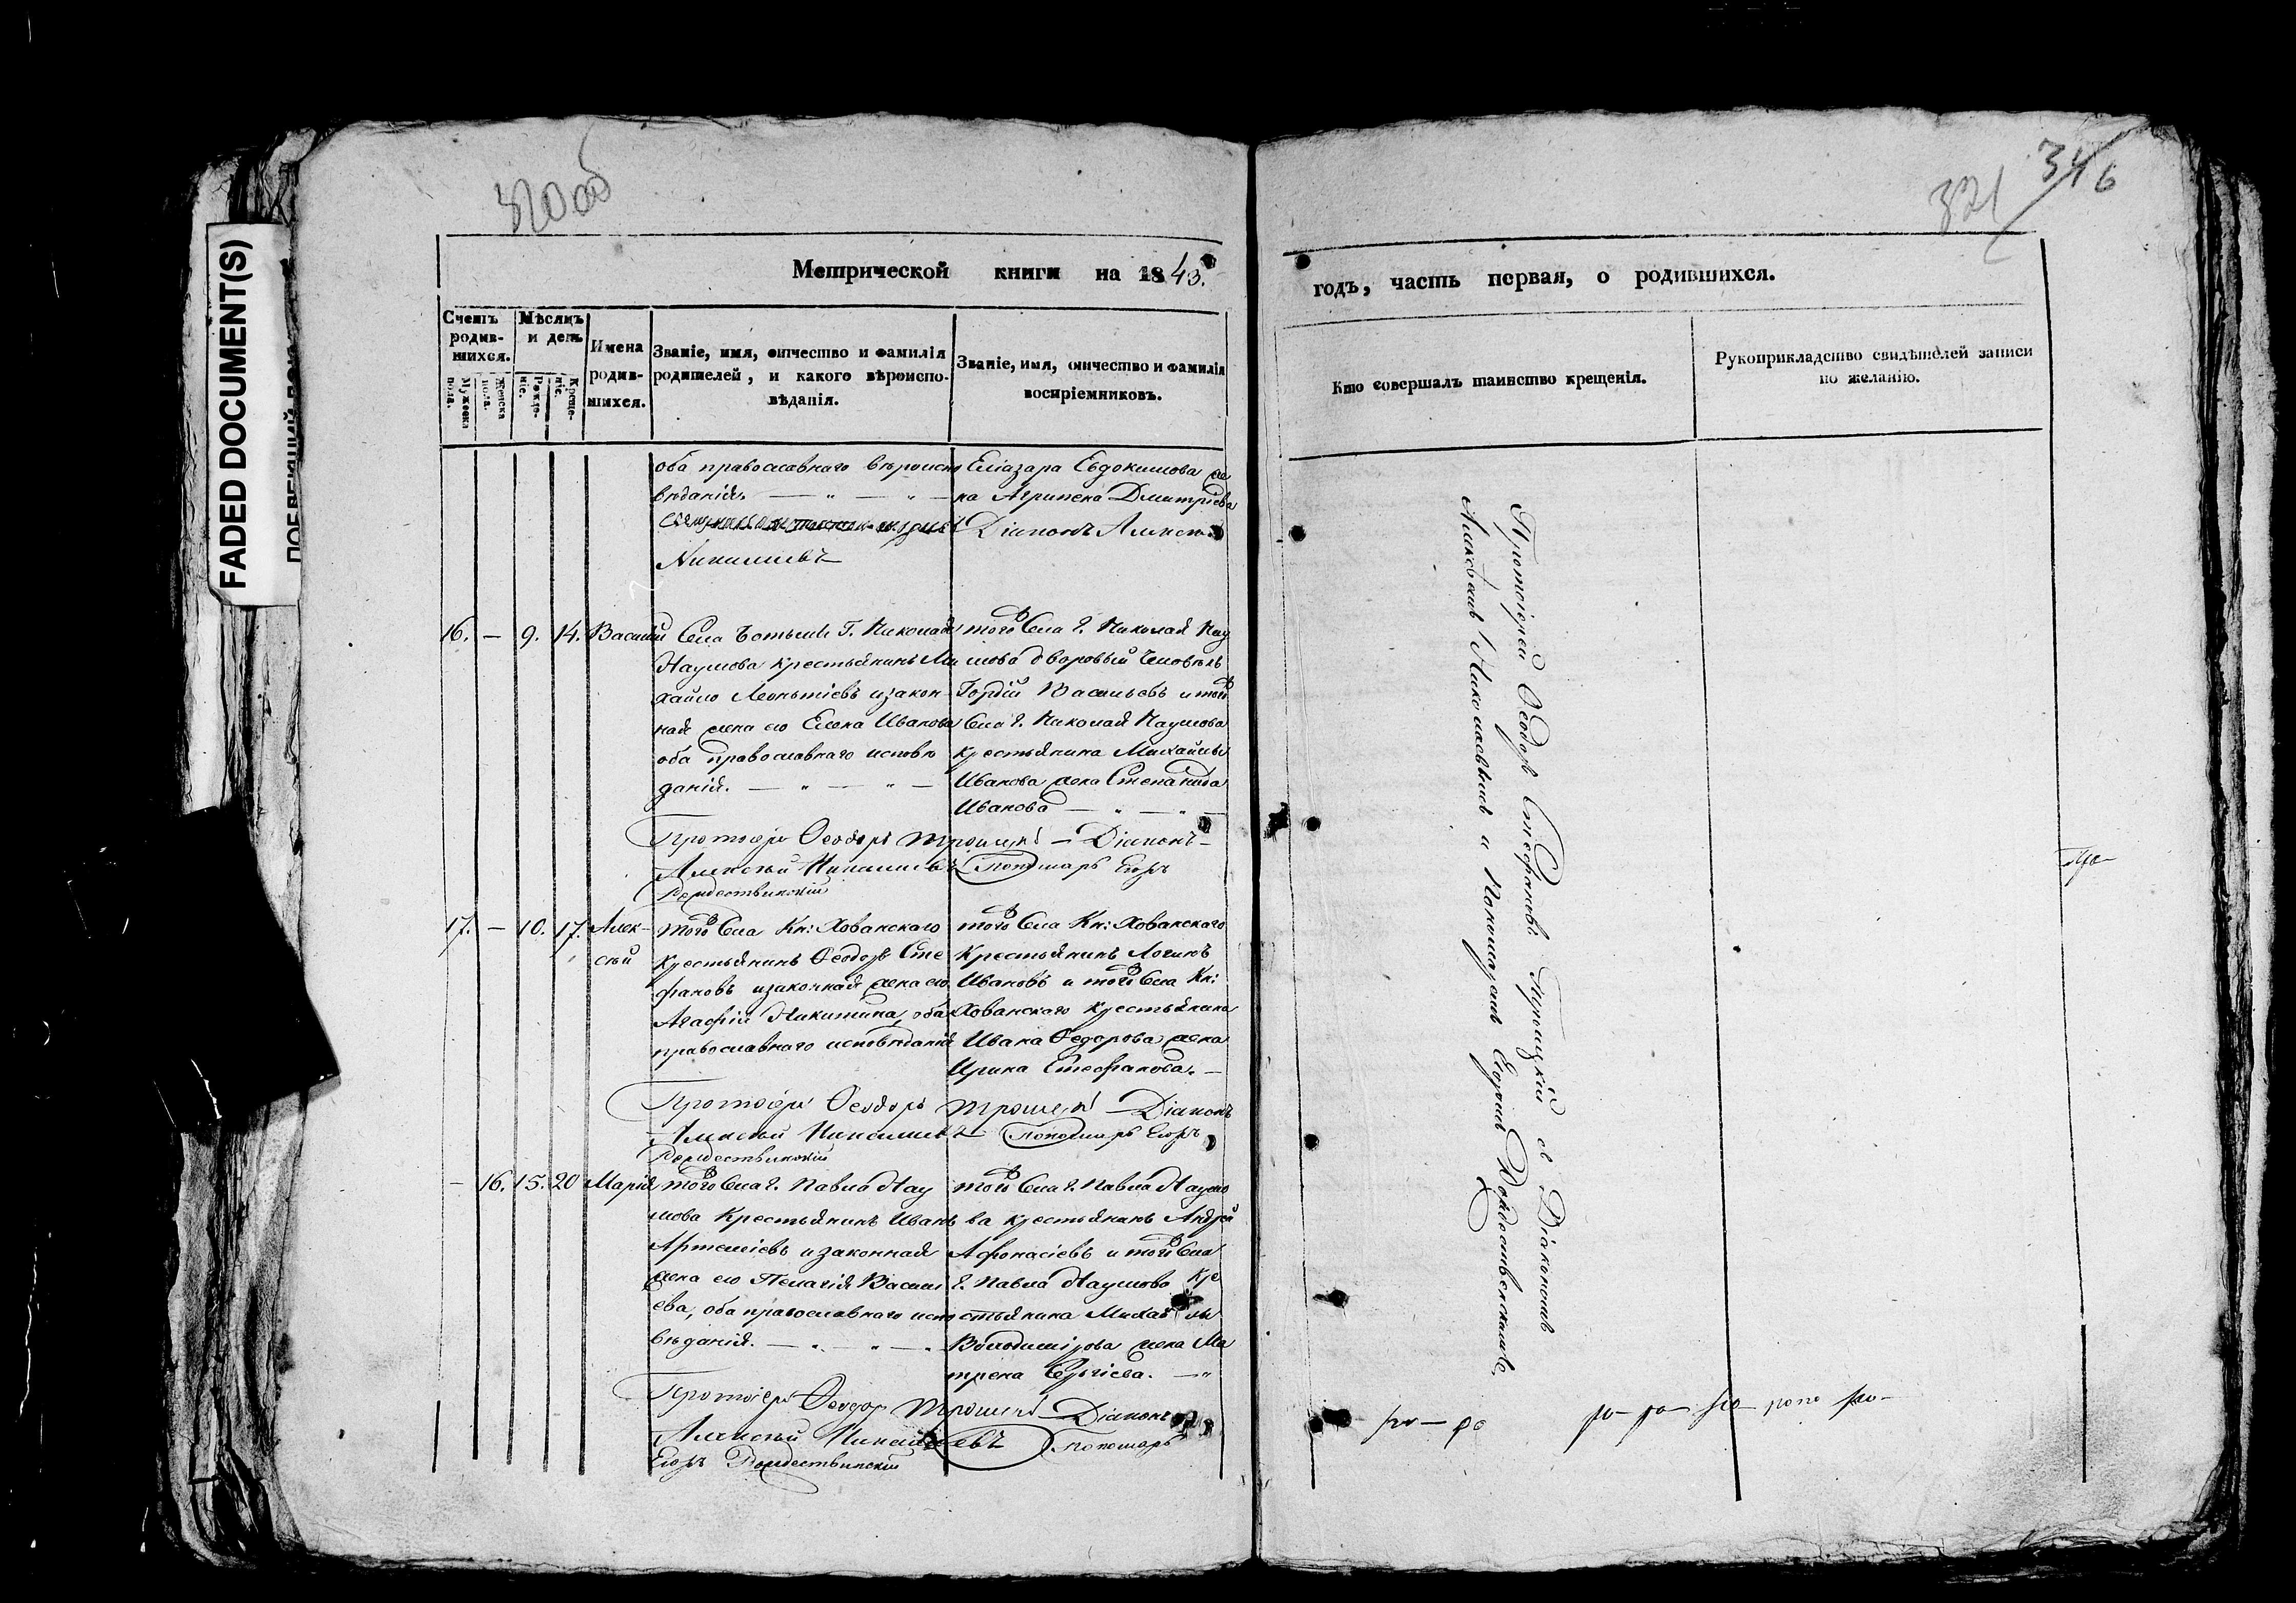 FADED DOCUMENT(S)
320 об
321
346
Метрической книги на 1843.
годъ, часть первая, о родившихся.
Счетъ родив-
шихся.
Мужеска пола.
Женска пола.
Мѣсяцъ и день
Рожде-
ніе.
Креще-
ніе.
Имена
родив-
шихся.
Званіе, имя, отчество и фамилія
родителей, и какого вѣроиспо-
вѣданія.
Званіе, имя, отчество и фамилія
воспріемниковъ.
Кто совершалъ таинство крещенія.
Рукоприкладство свидѣтелей записи
по желанію.
оба православнаго вѣроиспо
вѣданія.
Еліазара Евдокимова же
на Агрипена Дмитріева
Діаконъ Алексѣй
Николаевъ
16. — 9. 14. Василій
Села Г. Николая
Наумова крестьянинъ Ми
хайло Леонтіевъ и закон
ная жена его Елена Иванова
оба православнаго исповѣ
данія.
того Села Г. Николая Нау
мова дворовый человѣкъ
Гордій Васильевъ и того
Села Г. Николая Наумова
крестьянина Михайлы
Иванова жена Степанида
Иванова
Протоіерей Феодоръ Троицкій — Діаконъ
Алексѣй Николаевъ Пономарь Егоръ
Рождественскій
17. — 10. 17. Алек-
сѣй
того Села Кн: Хованскаго
крестьянинъ Феодоръ Сте
фановъ и законная жена его
Агафія Никитина, оба
православнаго исповѣданія
того Села Кн: Хованскаго
крестьянинъ Логинъ
Ивановъ и того Села Кн:
Хованскаго крестьянина
Ивана Федорова жена
Ирина Стефанова. —
Протоіерей Феодоръ Троицкій — Діаконъ
Алексѣй Николаевъ Пономарь Егоръ
Рождественскій
— 16. 15. 20 Марія
того Села Г. Павла Нау
мова Крестьянинъ Иванъ
Артеміевъ и законная
жена его Пелагія Васили
ева, оба православнаго испо
вѣданія.
того Села Г. Павла Наумо
ва крестьянинъ Андрей
Афонасіевъ и того Села
Г. Павла Наумова кре
стьянина Михайлы
Володимірова жена Ма
трена Сергіева.
Протоіерей Феодоръ Троицкій — Діаконъ
Алексѣй Николаевъ Пономарь
Егоръ Рождественскій
Протоіерей Феодоръ Стефановъ Троицкій съ Діакономъ
Алексѣемъ Николаевымъ и Пономаремъ Егоромъ Рождественскимъ